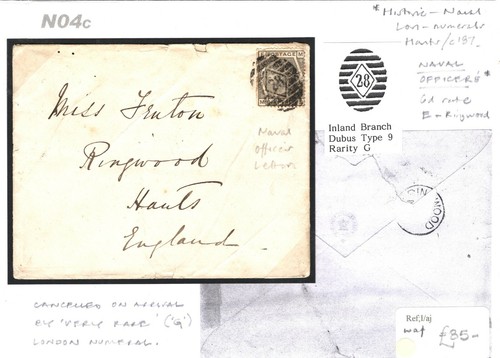 N04c
* Historic - Naval
Lon - numerals
Hants / c187
NAVAL
OFFICERS *
6d rate
E - Ringwood
E POSTAGE M
28
Inland Branch
Dubus Type 9
Rarity G
Miss Fenton
Ringwood
Hants
England
Naval
Officer
Letter
WOOD
CANCELLED ON ARRIVAL
BY 'VERY RARE' ('G')
LONDON NUMERAL.
Ref,I/aj
£35-